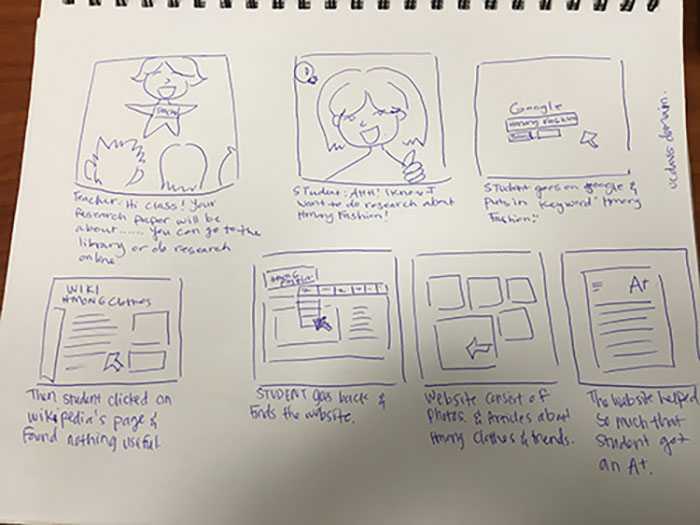 Teacher: Hi class! Your
research paper will be
about...... You can go to the
library or do research
online
Student: Ahh! I know I
want to do research about
Hmong Fashion!
Google
Hmong Fashion
Student goes on google &
puts in keyword "Hmong
Fashion."
ucdavis domain.
WIKI
HMONG Clothes
Then student clicked on
wikipedia's page &
found nothing useful.
HMONG
STUDENT goes back &
finds the website.
Website consist of
photos & Articles about
Hmong clothes & trends.
A+
The website helped
so much that
student got
an A+.